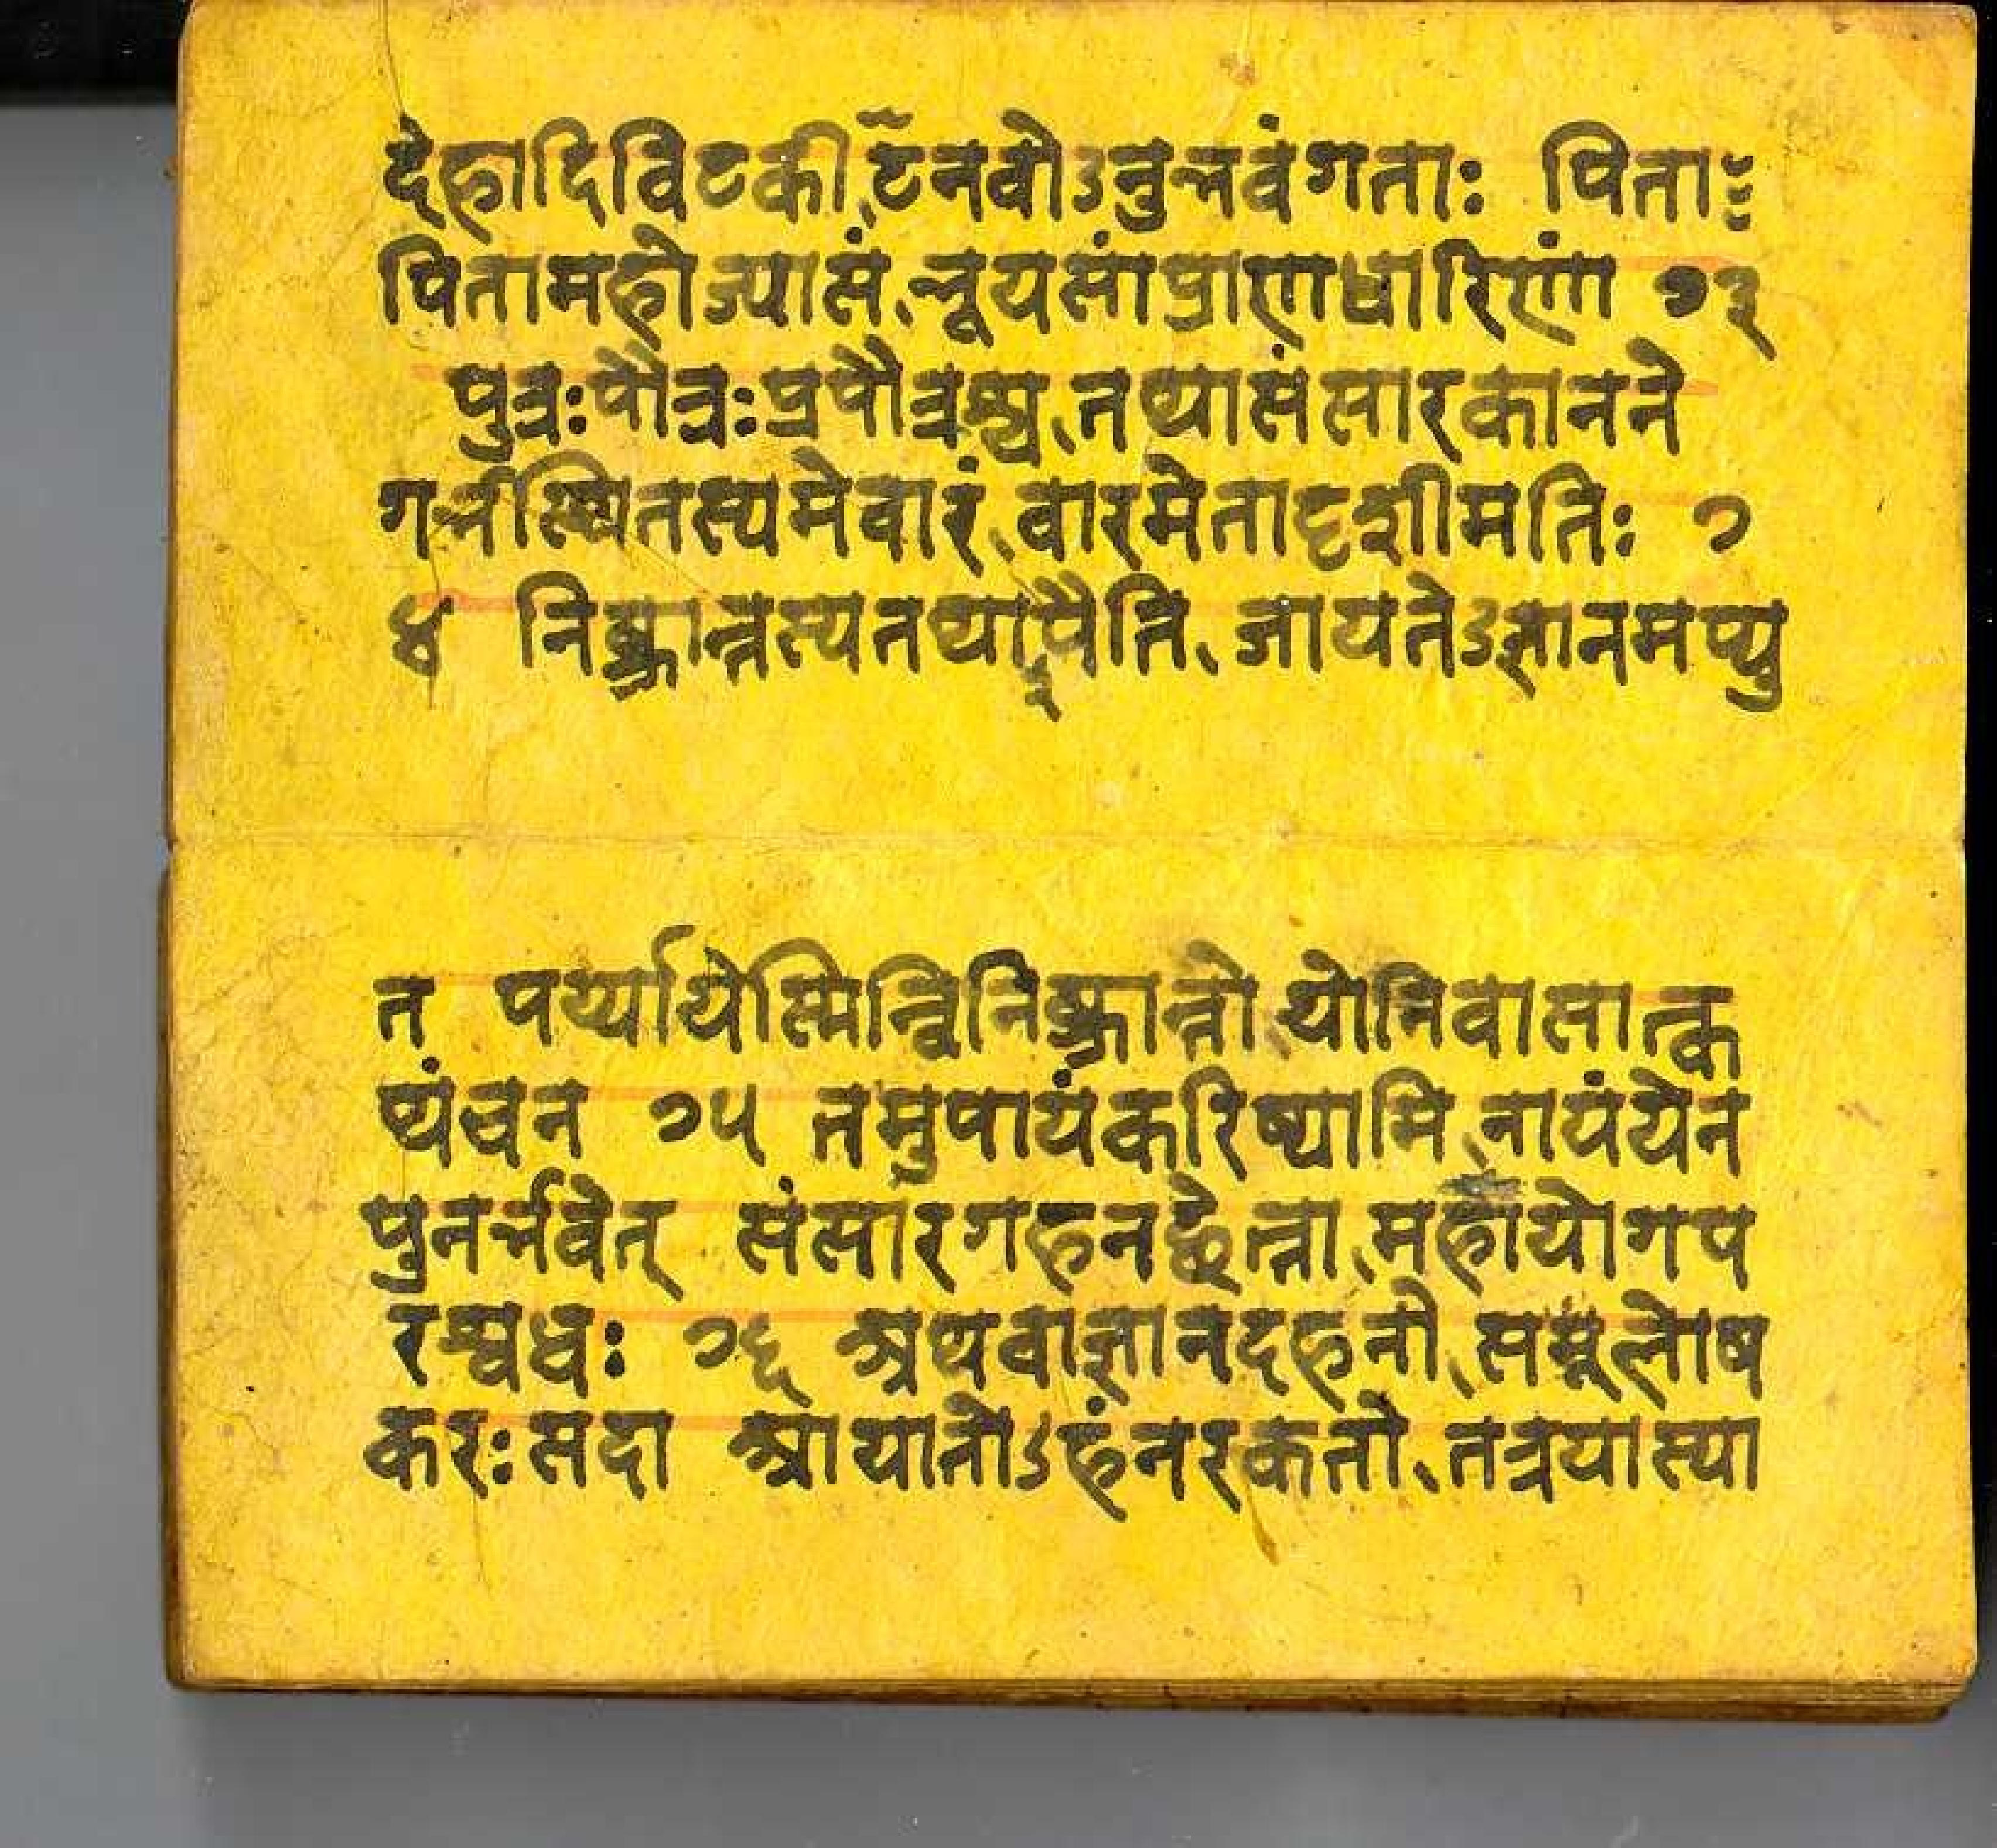 देहादिविटकीटैनवोऽनुभवंगताः पिताः
पितामहोज्यासं भूयसांप्राणधारिणां १३
पुत्रःपौत्रःप्रपौत्रश्च तथासंसारकानने
गर्भस्थितस्यमेवारं वारमेतादृशीमतिः १
४ निष्क्रान्तस्यतथापैति जायतेऽज्ञानमप्यु
त पर्य्यायेस्मिन्विनिष्क्रान्तो योनिवासात्क
थंचन १५ तमुपायंकरिष्यामि नायंयेन
पुनर्भवेत् संसारगहनद्धेत्ता महायोगप
रश्वधः १६ अथवाज्ञानदहनो समूलोष
करःसदा आयातोऽहंनरकतो तत्रयास्या